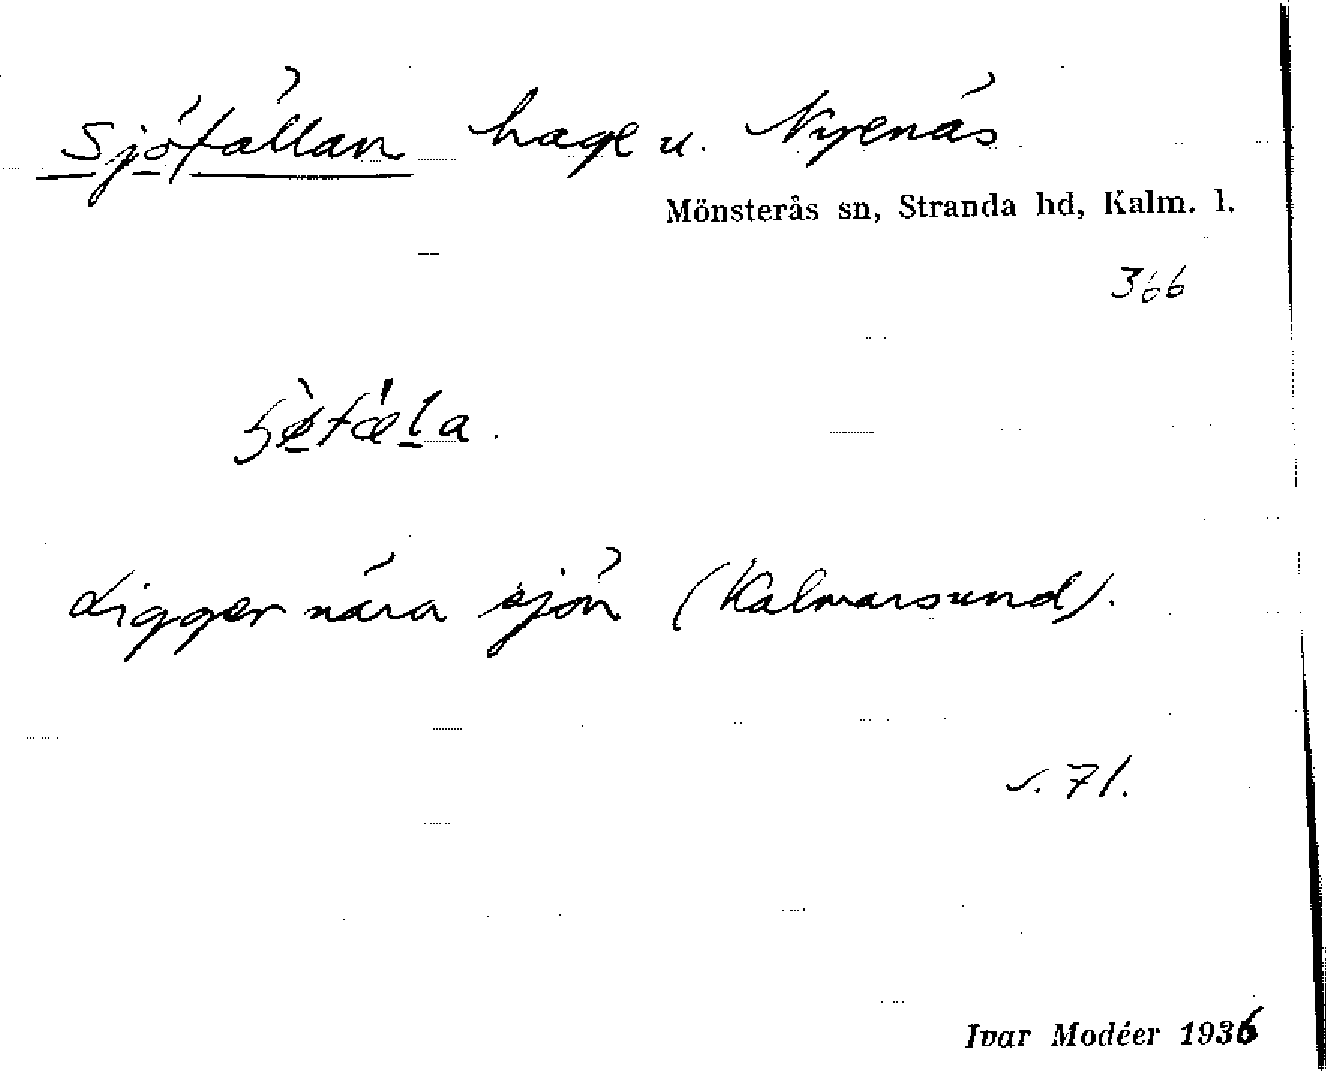 Sjöfällan hage u. Nyenäs
Mönsterås sn, Stranda hd, Kalm. l.
366
Ligger nära sjön (Kalmarsund).
s. 71.
Ivar Modéer 1936